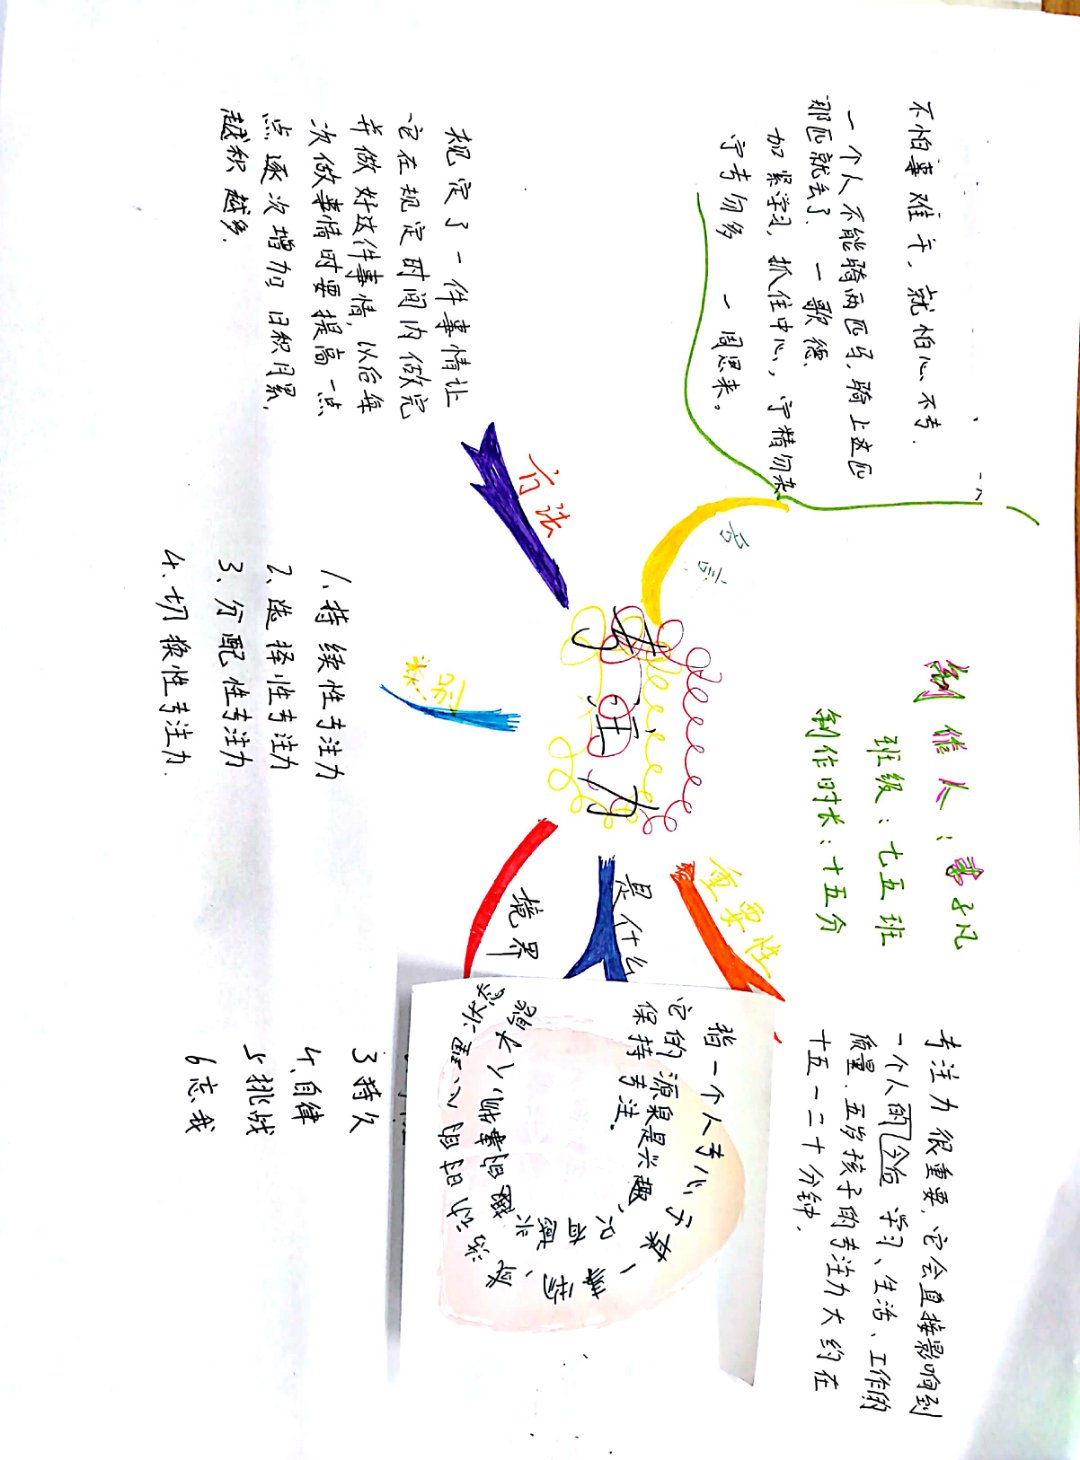 制作人：
班级：七五班
制作时长：十五分
专注力
名言
不怕事难干，就怕心不专．
一个人不能骑两匹马，骑上这匹
那匹就丢了． 一歌德．
加紧学习，抓住中心，宁精勿杂
宁专勿多 一周恩来。
重要性
专注力很重要，它会直接影响到
一个人的 学习、生活、工作的
质量．五岁孩子的专注力大约在
十五－二十分钟．
是什么
指一个人专心于某一事物、
它的源泉是兴趣、只有
保持专注．
境界
3持久
4自律
5挑战
6忘我
类别
1、持续性专注力
2、选择性专注力
3、分配性专注力
4、切换性专注力．
方法
规定了一件事情让
它在规定时间内做完
并做好这件事情，以后每
次做事情时要提高一点
点逐次增加日积月累，
越积越多．